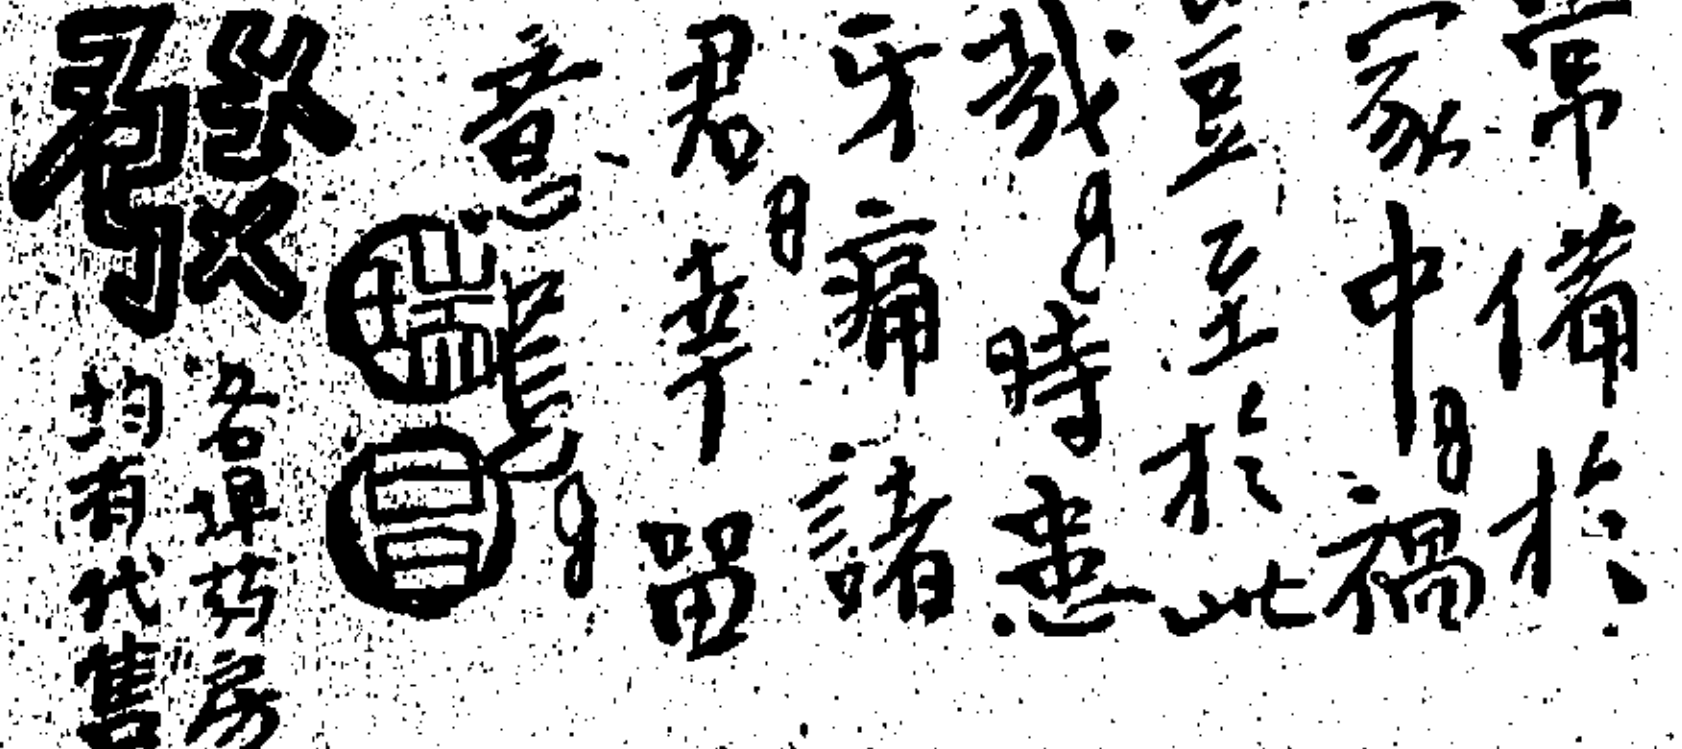 常備於
家中禍
豈至於此
哉時患
牙痛諸
君幸留
意焉
瑞昌
發
各埠药房
均有代售